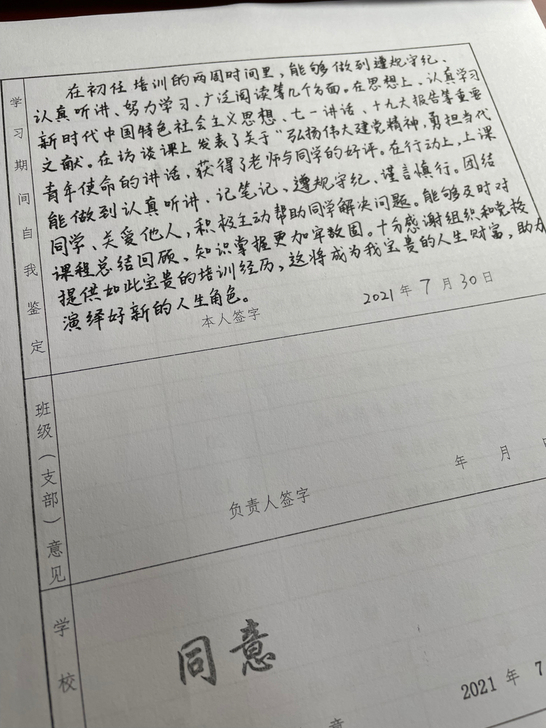 学习期间自我鉴定
在初任培训的两周时间里,能够做到遵规守纪、
认真听讲、努力学习、广泛阅读等几个方面。在思想上,认真学习
新时代中国特色社会主义思想、七一讲话、十九大报告等重要
文献。在访谈课上发表了关于“弘扬伟大建党精神,勇担当代
青年使命的讲话,获得了老师与同学的好评。在行动上,上课
能做到认真听讲、记笔记、遵规守纪、谨言慎行。团结
同学、关爱他人,积极主动帮助同学解决问题。能够及时对
课程总结回顾、知识掌握更加牢固。十分感谢组织和党校
提供如此宝贵的培训经历,这将成为我宝贵的人生财富,助
演绎好新的人生角色。
本人签字
2021年7月30日
班级(支部)意见
年 月
负责人签字
学校
同意
2021年7
章